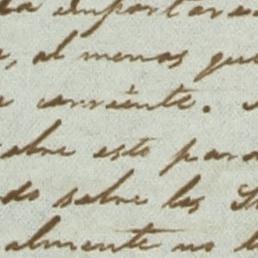 importa
, al menos que
corriente.
sobre esto para
do sobre las
almente no